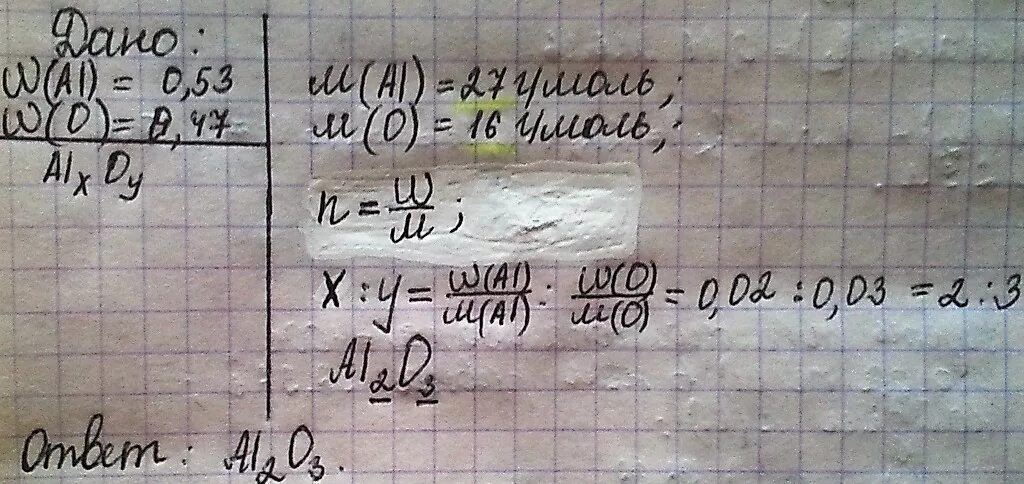 Дано:
W(Al) = 0,53
W(O) = 0,47
AlxOy
M(Al) = 27 г/моль;
M(O) = 16 г/моль;
n = W/M;
X : y = W(Al)/M(Al) : W(O)/M(O) = 0,02 : 0,03 = 2 : 3
Al2O3
Ответ: Al2O3.